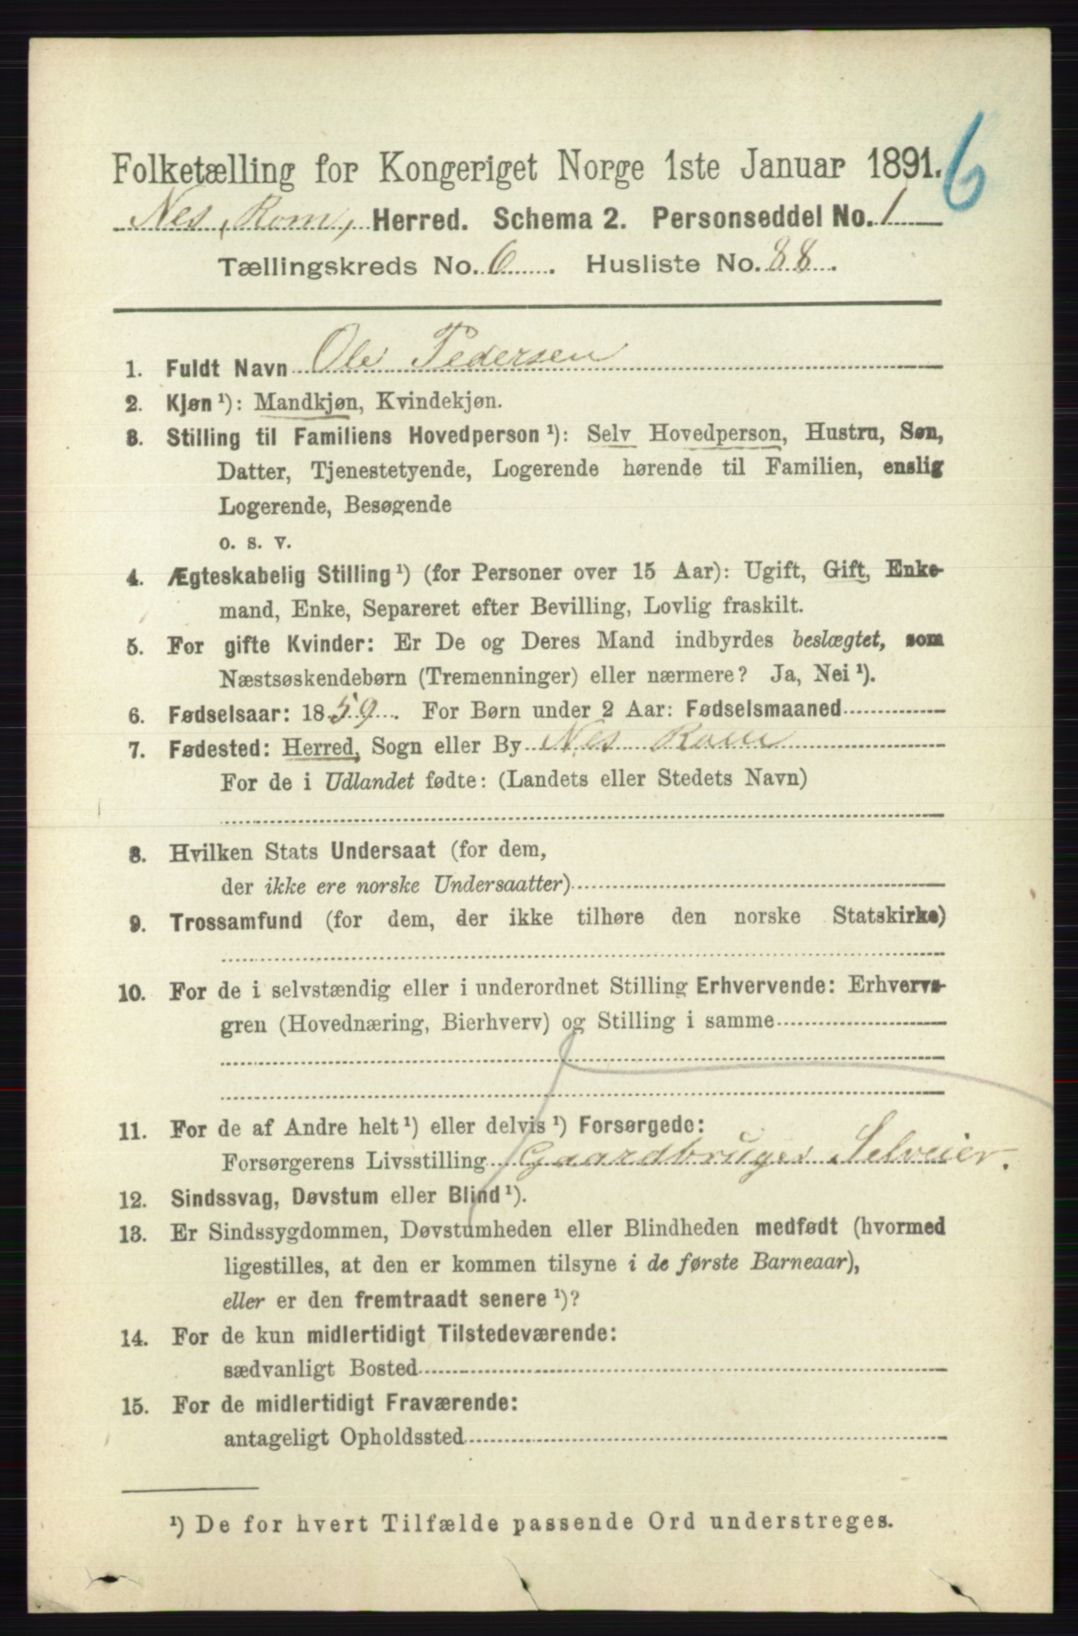 6
Folketælling for Kongeriget Norge 1ste Januar 1891.
Nes, Rom, Herred. Schema 2. Personseddel No. 1
Tællingskreds No. 6. Husliste No. 88.
1. Fuldt Navn Ole Pedersen
2. Kjøn¹): Mandkjøn, Kvindekjøn.
3. Stilling til Familiens Hovedperson¹): Selv Hovedperson, Hustru, Søn,
Datter, Tjenestetyende, Logerende hørende til Familien, enslig
Logerende, Besøgende
o. s. v.
4. Ægteskabelig Stilling¹) (for Personer over 15 Aar): Ugift, Gift, Enke-
mand, Enke, Separeret efter Bevilling, Lovlig fraskilt.
5. For gifte Kvinder: Er De og Deres Mand indbyrdes beslægtet, som
Næstsøskendebørn (Tremenninger) eller nærmere? Ja, Nei¹).
6. Fødselsaar: 1859. For Børn under 2 Aar: Fødselsmaaned
7. Fødested: Herred, Sogn eller By Nes Rom
For de i Udlandet fødte: (Landets eller Stedets Navn)
8. Hvilken Stats Undersaat (for dem,
der ikke ere norske Undersaatter)
9. Trossamfund (for dem, der ikke tilhøre den norske Statskirke)
10. For de i selvstændig eller i underordnet Stilling Erhvervende: Erhvervs-
gren (Hovednæring, Bierhverv) og Stilling i samme
11. For de af Andre helt¹) eller delvis¹) Forsørgede:
Forsørgerens Livsstilling Gaardbruger Selveier.
12. Sindssvag, Døvstum eller Blind¹).
13. Er Sindssygdommen, Døvstumheden eller Blindheden medfødt (hvormed
ligestilles, at den er kommen tilsyne i de første Barneaar),
eller er den fremtraadt senere¹)?
14. For de kun midlertidigt Tilstedeværende:
sædvanligt Bosted
15. For de midlertidigt Fraværende:
antageligt Opholdssted
¹) De for hvert Tilfælde passende Ord understreges.